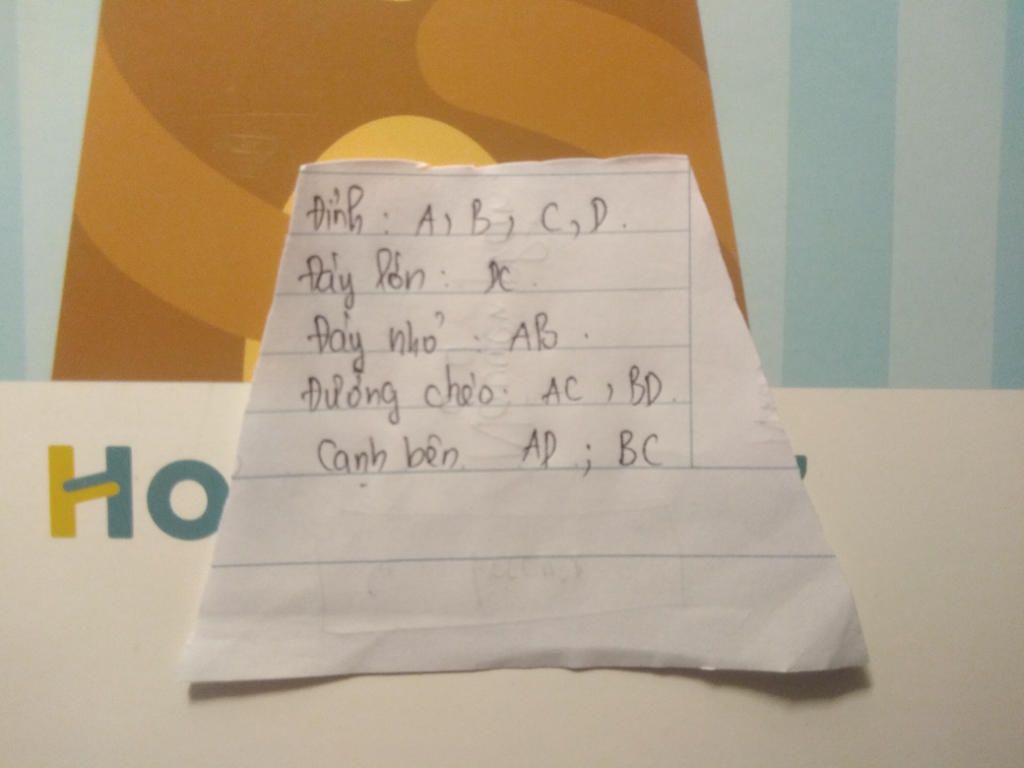 Đỉnh: A, B, C, D.
Đáy lớn: DC.
Đáy nhỏ: AB.
Đường chéo: AC, BD.
Cạnh bên AD; BC
HO